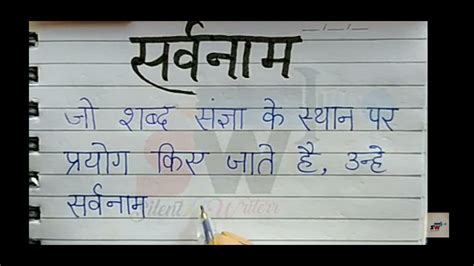 सर्वनाम
जो शब्द संज्ञा के स्थान पर
प्रयोग किए जाते है, उन्हे
सर्वनाम
Silent Writer
SW